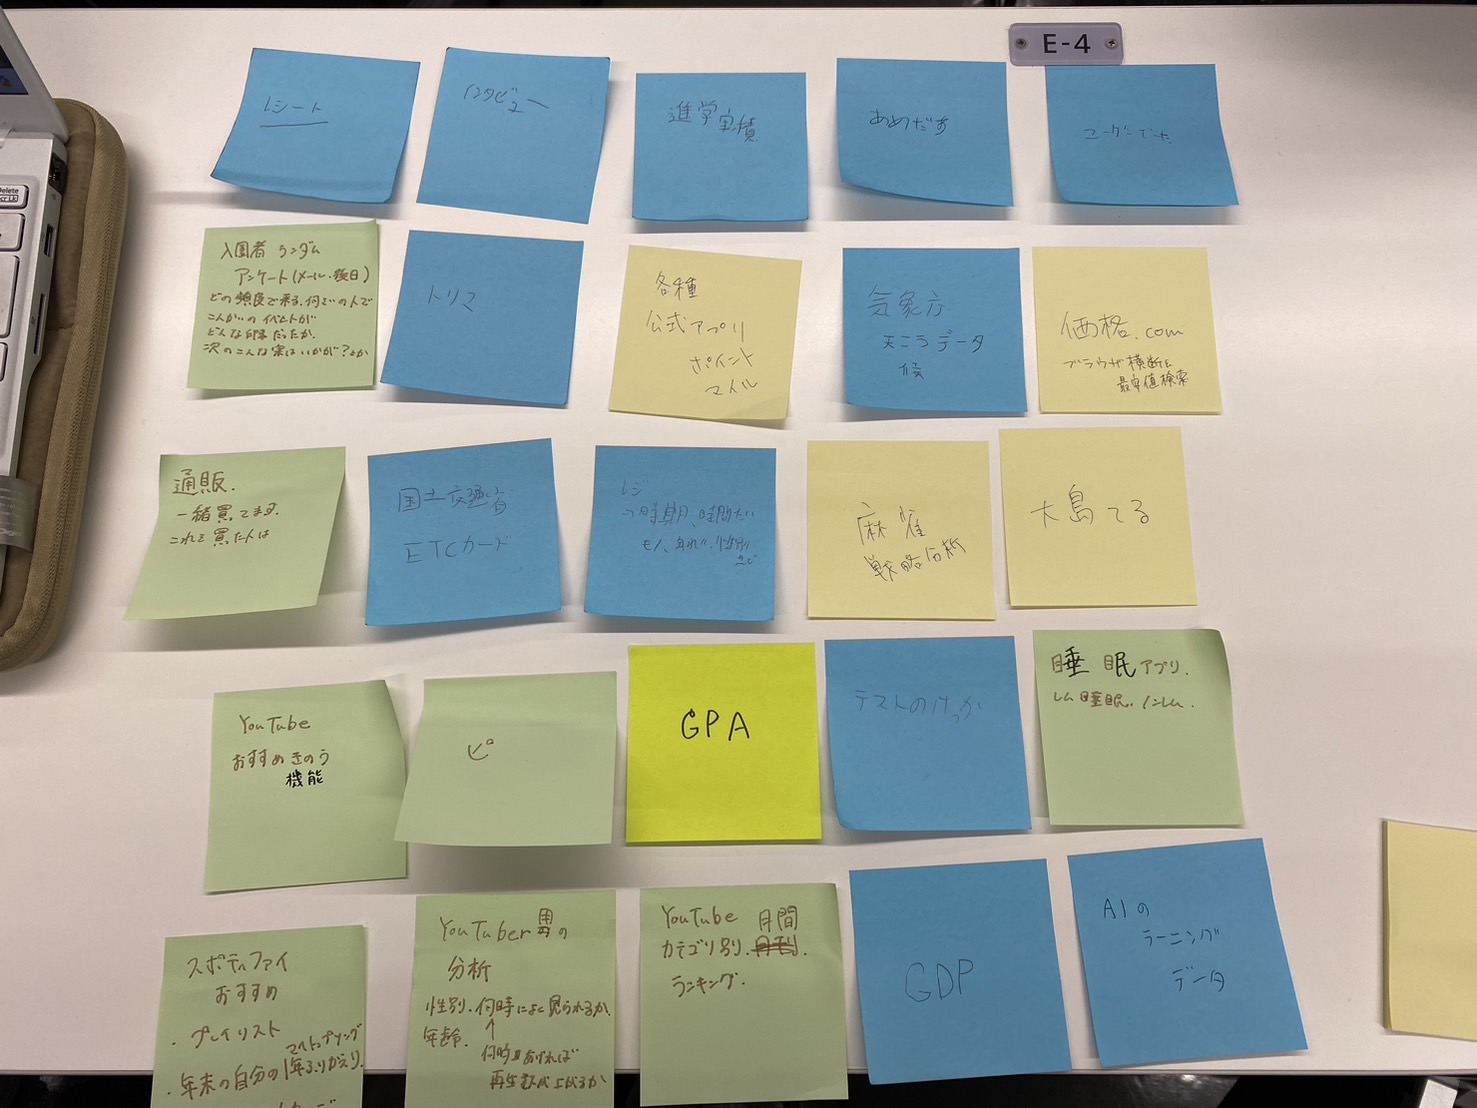 E-4
レシート
インタビュー
進学実積
あめだす
ユーザーデータ
入園者 ランダム
アンケート(メール・後日)
どの頻度で来る、何どの人で
こんかいのイベントが
どんな印象だったか、
次のこんな実はいかが?とか
トリマ
各種
公式アプリ
ポイント
マイル
気象庁
天こうデータ
候
価格.com
ブラウザ横断し
最安値検索
通販.
一緒買てます.
これを買た人は
国土交通省
ETCカード
レジ
の時期、時間たい
モノ、年れい、性別
など
麻雀
戦略分析
大島てる
YouTube
おすすめきのう
機能
ピ
GPA
テストのけっか
睡眠アプリ.
レム睡眠、ノンレム.
スポティファイ
おすすめ
・プレイリスト
マイトップソング
・年末の自分の1年ふりかえり.
YouTuber用の
分析
性別.何時によく見られるか.
年齢.
↑
何時にあければ
再生数が上がるか
YouTube 月間
カテゴリ別.
ランキング.
GDP
AIの
ラーニング
データ
Delete